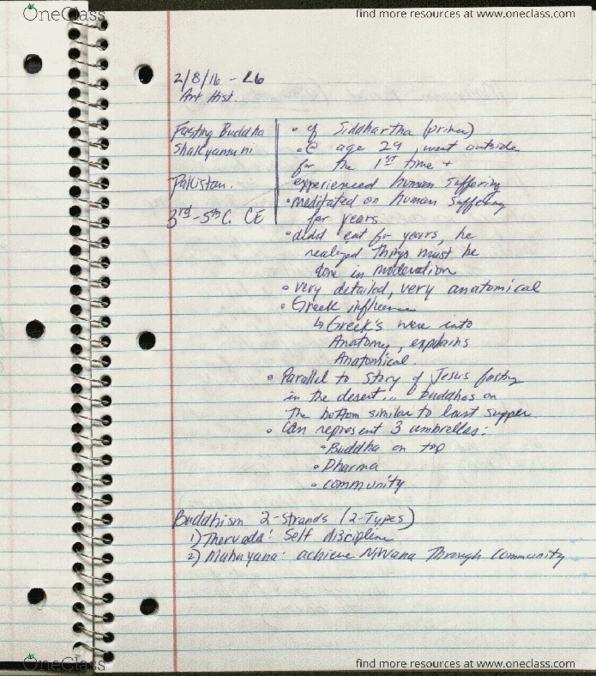 OneClass
find more resources at www.oneclass.com
2/8/16 - L6
Art Hist.
Fasting Buddha
Shakyamuni
Pakistan.
3rd-5th C. CE
• of Siddhartha (prince)
• @ age 29, went outside
for the 1st time +
experienced human suffering
• meditated on human suffering
for years
• didnt eat for years, he
realized things must be
done in moderation
• very detailed, very anatomical
• Greek influence
↳ Greek's were into
Anatomy, explains
Anatomical.
• Parallel to story of Jesus fasting
in the desert... buddhas on
the bottom similar to last supper
• Can represent 3 umbrellas:
• Buddha on top
• Dharma
• community
Buddhism 2-Strands (2-Types)
1) Thervada: Self discipline
2) Mahayana: achieve Nirvana Through Community
OneClass
find more resources at www.oneclass.com